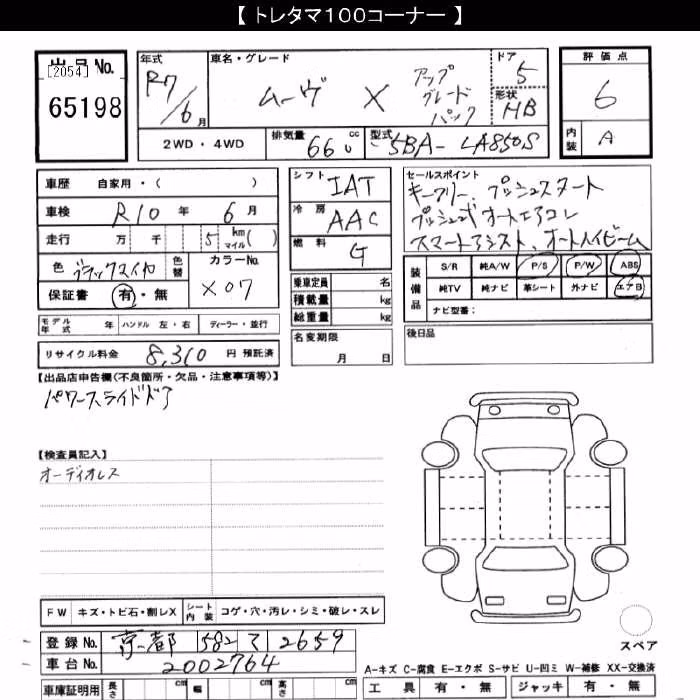 【 トレタマ100コーナー 】
出品 No.
[2054]
65198
年式
R7/6月
車名・グレード
ムーヴ X アップグレードパック
ドア
5
形状
HB
評価点
6
内装 A
2WD・4WD
排気量 660 cc
型式 5BA-LA850S
車歴 自家用・( )
車検 R10 年 6 月
走行 万 千 5 km マイル( )
色 ブラックマイカ 色替
カラーNo. X07
保証書 有・無
モデル年式 年 ハンドル 左・右 ディーラー・並行
リサイクル料金 8,310 円 預託済
シフト IAT
冷房 AAC
燃料 G
乗車定員 名
積載量 kg
総重量 kg
名変期限
月 日
セールスポイント
キーフリー、プッシュスタート
プッシュ式オートエアコン
スマートアシスト、オートハイビーム
装備品
S/R 純A/W P/S P/W ABS
純TV 純ナビ 革シート 外ナビ エアB
ナビ型番:
後日品
【出品店申告欄(不良箇所・欠品・注意事項等)】
パワースライドドア
【検査員記入】
オーディオレス
FW キズ・トビ石・割レX シート内装 コゲ・穴・汚レ・シミ・破レ・スレ
登録 No. 京都 582 2659
車台 No. 2002764
車庫証明用 長さ cm 幅 cm 高さ cm
スペア
A-キズ C-腐食 E-エクボ S-サビ U-凹ミ W-補修 XX-交換済
工具 有・無 ジャッキ 有・無